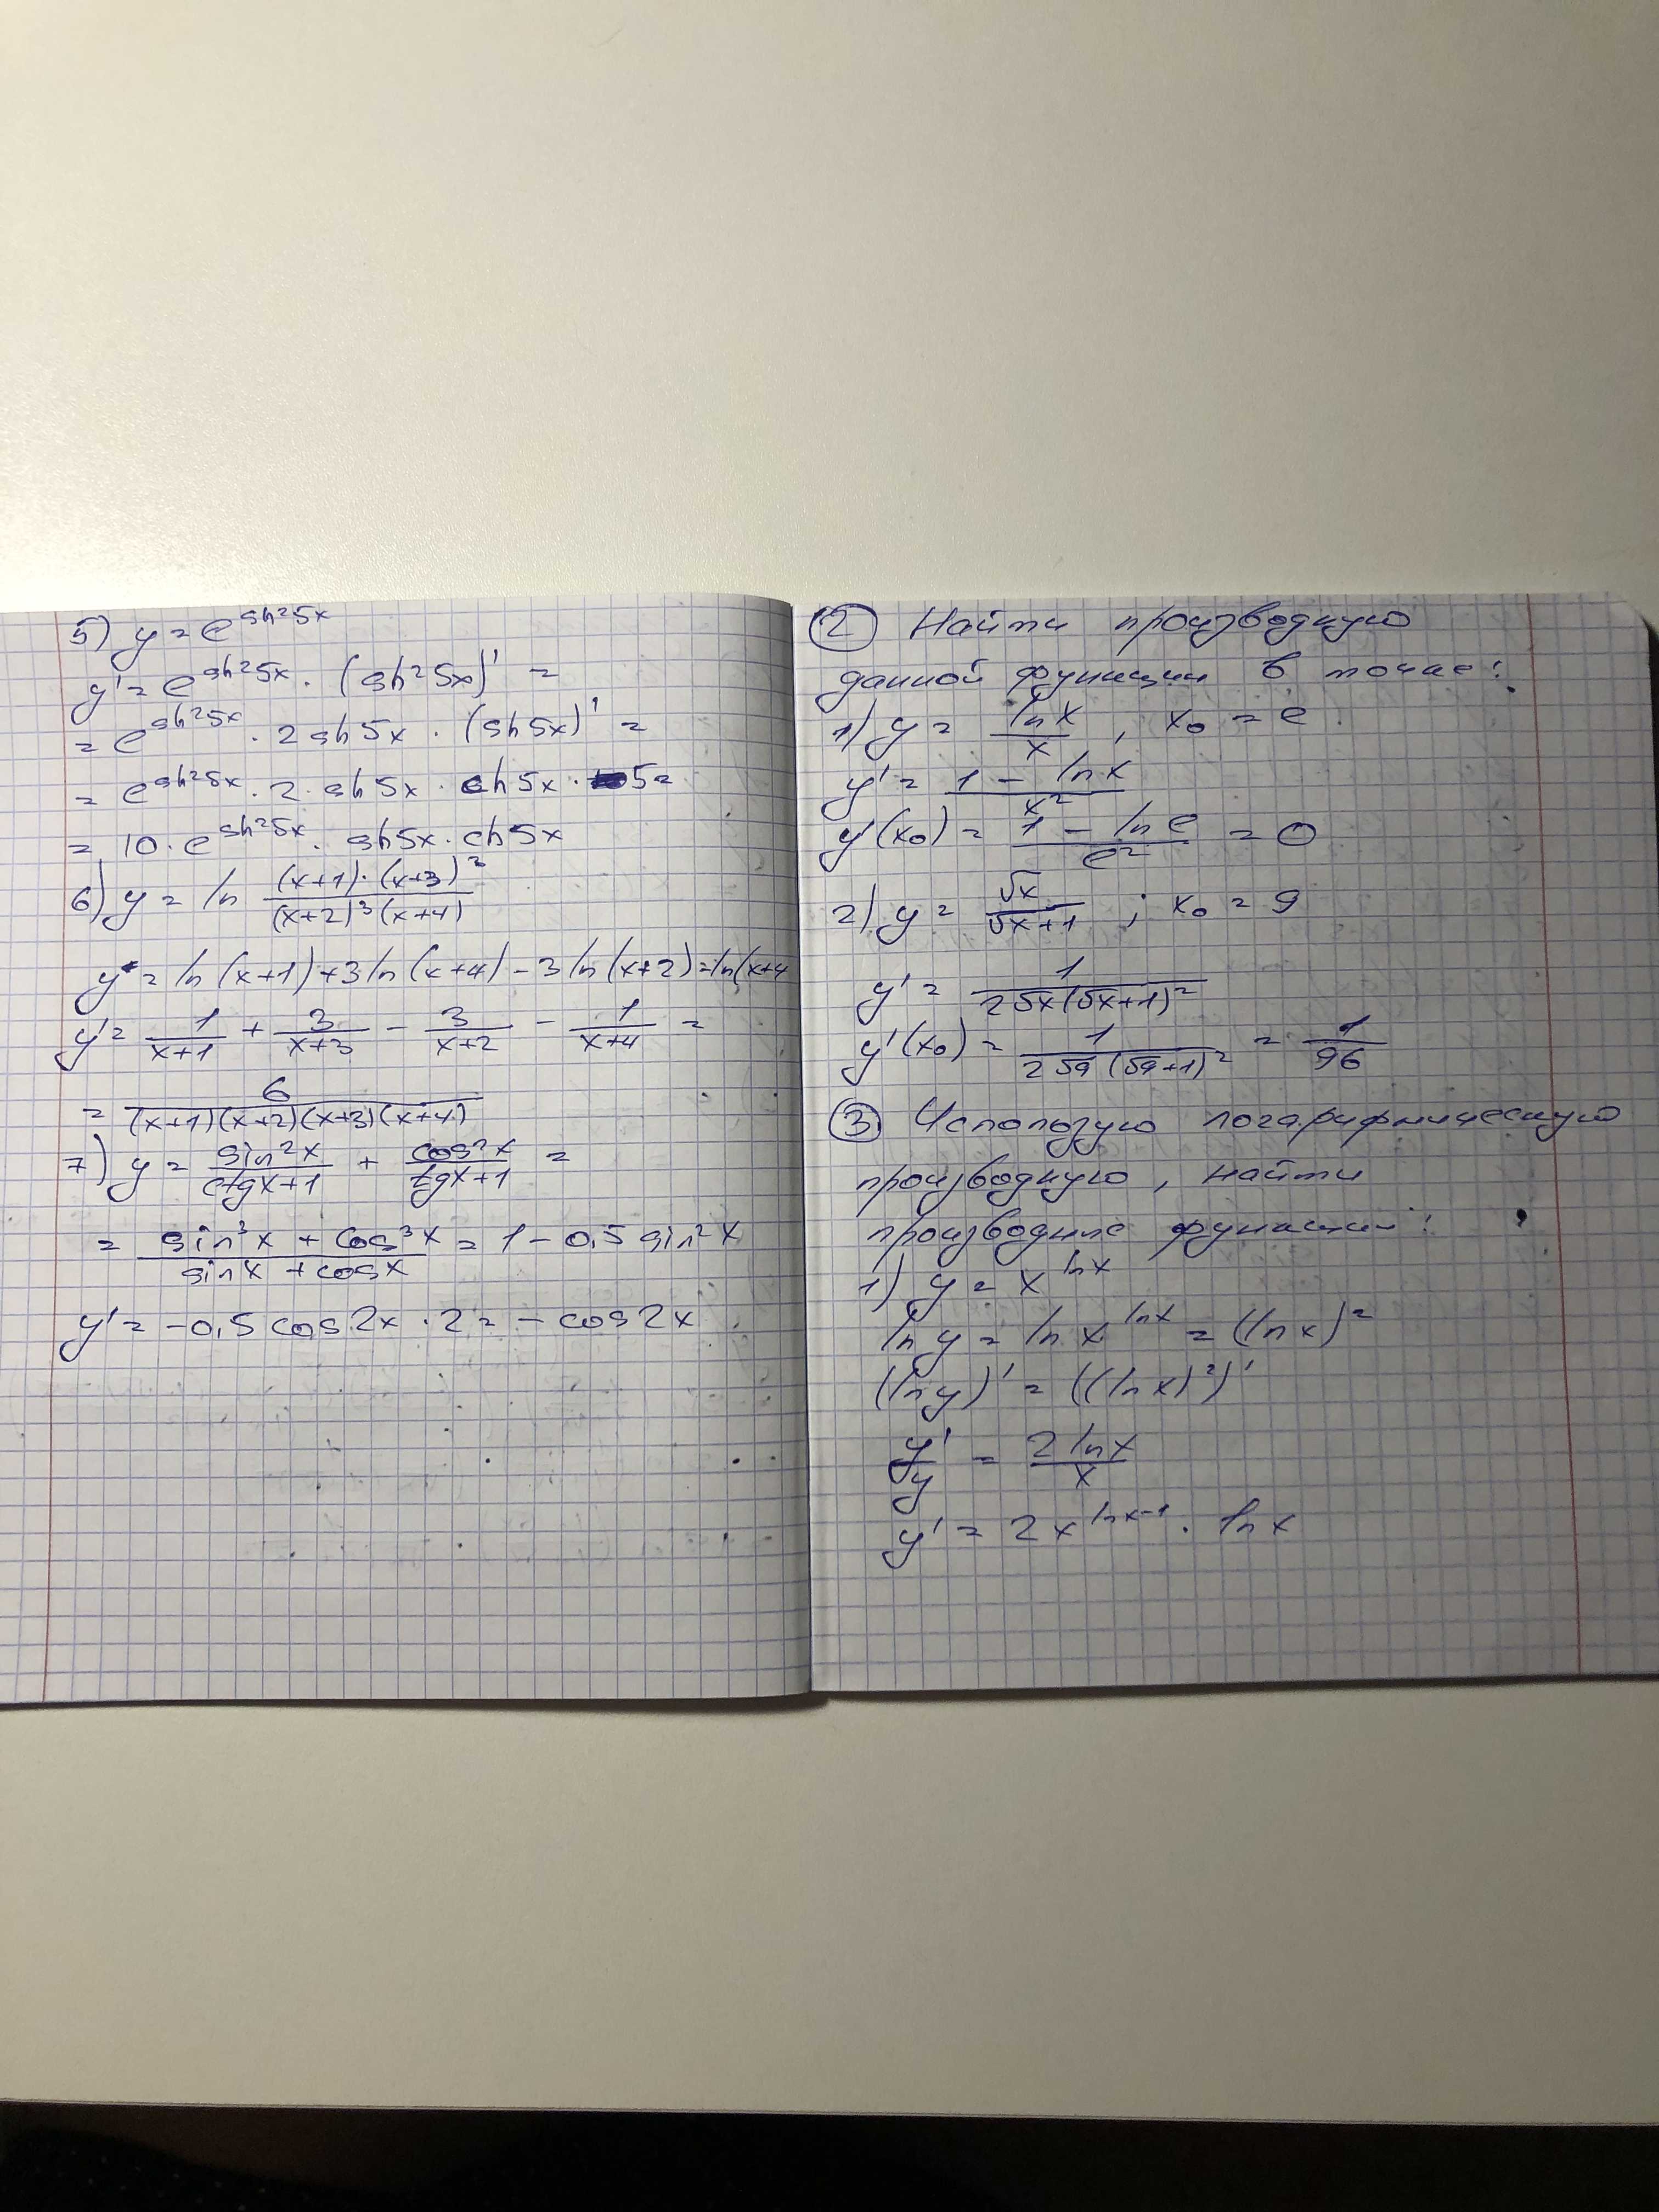 5) y = e^{sh²5x}
y' = e^{sh²5x} · (sh²5x)' =
= e^{sh²5x} · 2 sh5x · (sh5x)' =
= e^{sh²5x} · 2 · sh5x · ch5x · 5 =
= 10 · e^{sh²5x} · sh5x · ch5x
6) y = ln \frac{(x+1)·(x+3)^3}{(x+2)^3(x+4)}
y = ln(x+1)+3ln(x+4)-3ln(x+2)=ln(x+4
y' = \frac{1}{x+1} + \frac{3}{x+3} - \frac{3}{x+2} - \frac{1}{x+4} =
= \frac{6}{(x+1)(x+2)(x+3)(x+4)}
7) y = \frac{sin²x}{ctgx+1} + \frac{cos²x}{tgx+1} =
= \frac{sin³x + cos³x}{sinx + cosx} = 1 - 0,5 sin2x
y' = -0,5 cos2x · 2 = - cos2x
② Найти производную
данной функции в точке:
1) y = \frac{lnx}{x}, x₀ = e
y' = \frac{1 - lnx}{x²}
y'(x₀) = \frac{1 - ln e}{e²} = 0
2) y = \frac{√x}{√x+1} ; x₀ = 9
y' = \frac{1}{2√x(√x+1)²}
y'(x₀) = \frac{1}{2√9(√9+1)²} = \frac{1}{96}
③ Использую логарифмическую
производную, найти
производные функции:
1) y = x^{lnx}
ln y = ln x^{lnx} = (lnx)²
(ln y)' = ((ln x)²)'
\frac{y'}{y} = \frac{2 lnx}{x}
y' = 2x^{lnx-1} · ln x